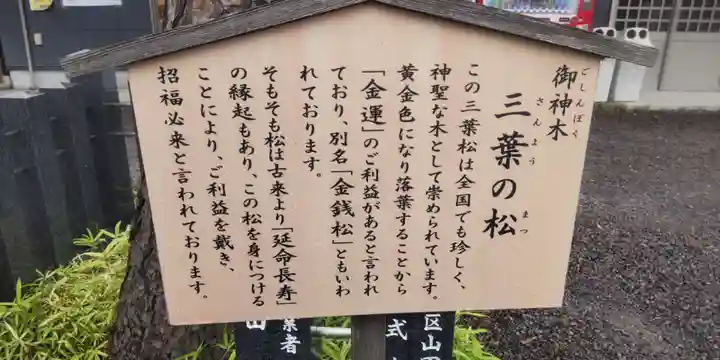 御神木
ごしんぼく
三葉の松
さんよう まつ
この三葉松は全国でも珍しく、
神聖な木として崇められています。
黄金色になり落葉することから
「金運」のご利益があると言われ
ており、別名「金銭松」ともいわ
れております。
そもそも松は古来より「延命長寿」
の縁起もあり、この松を身につける
ことにより、ご利益を戴き、
招福必来と言われております。
区山
式
業者
山